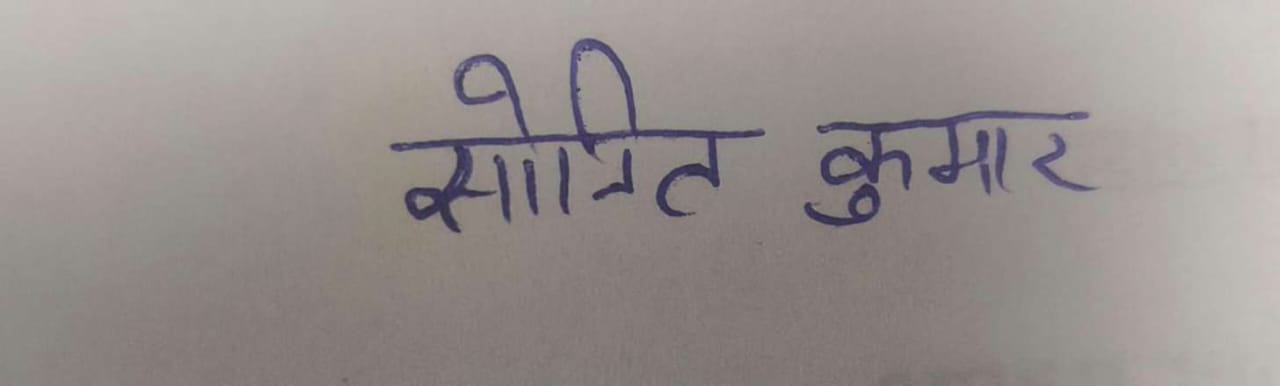 सोनित कुमार